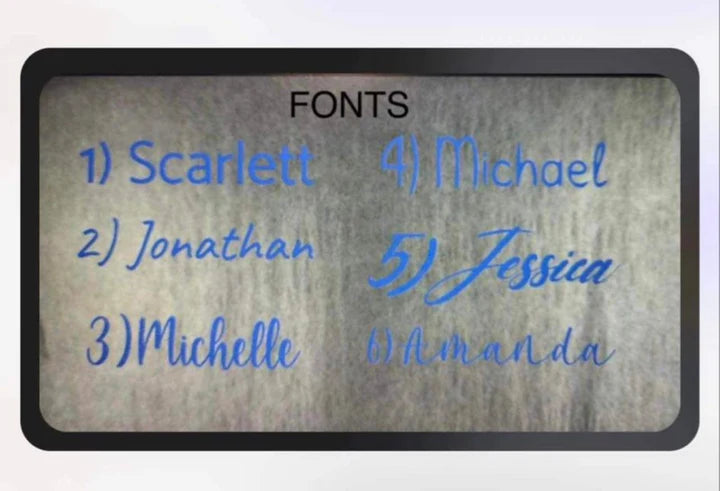 FONTS
1) Scarlett
2) Jonathan
3) Michelle
4) Michael
5) Jessica
6) Amanda